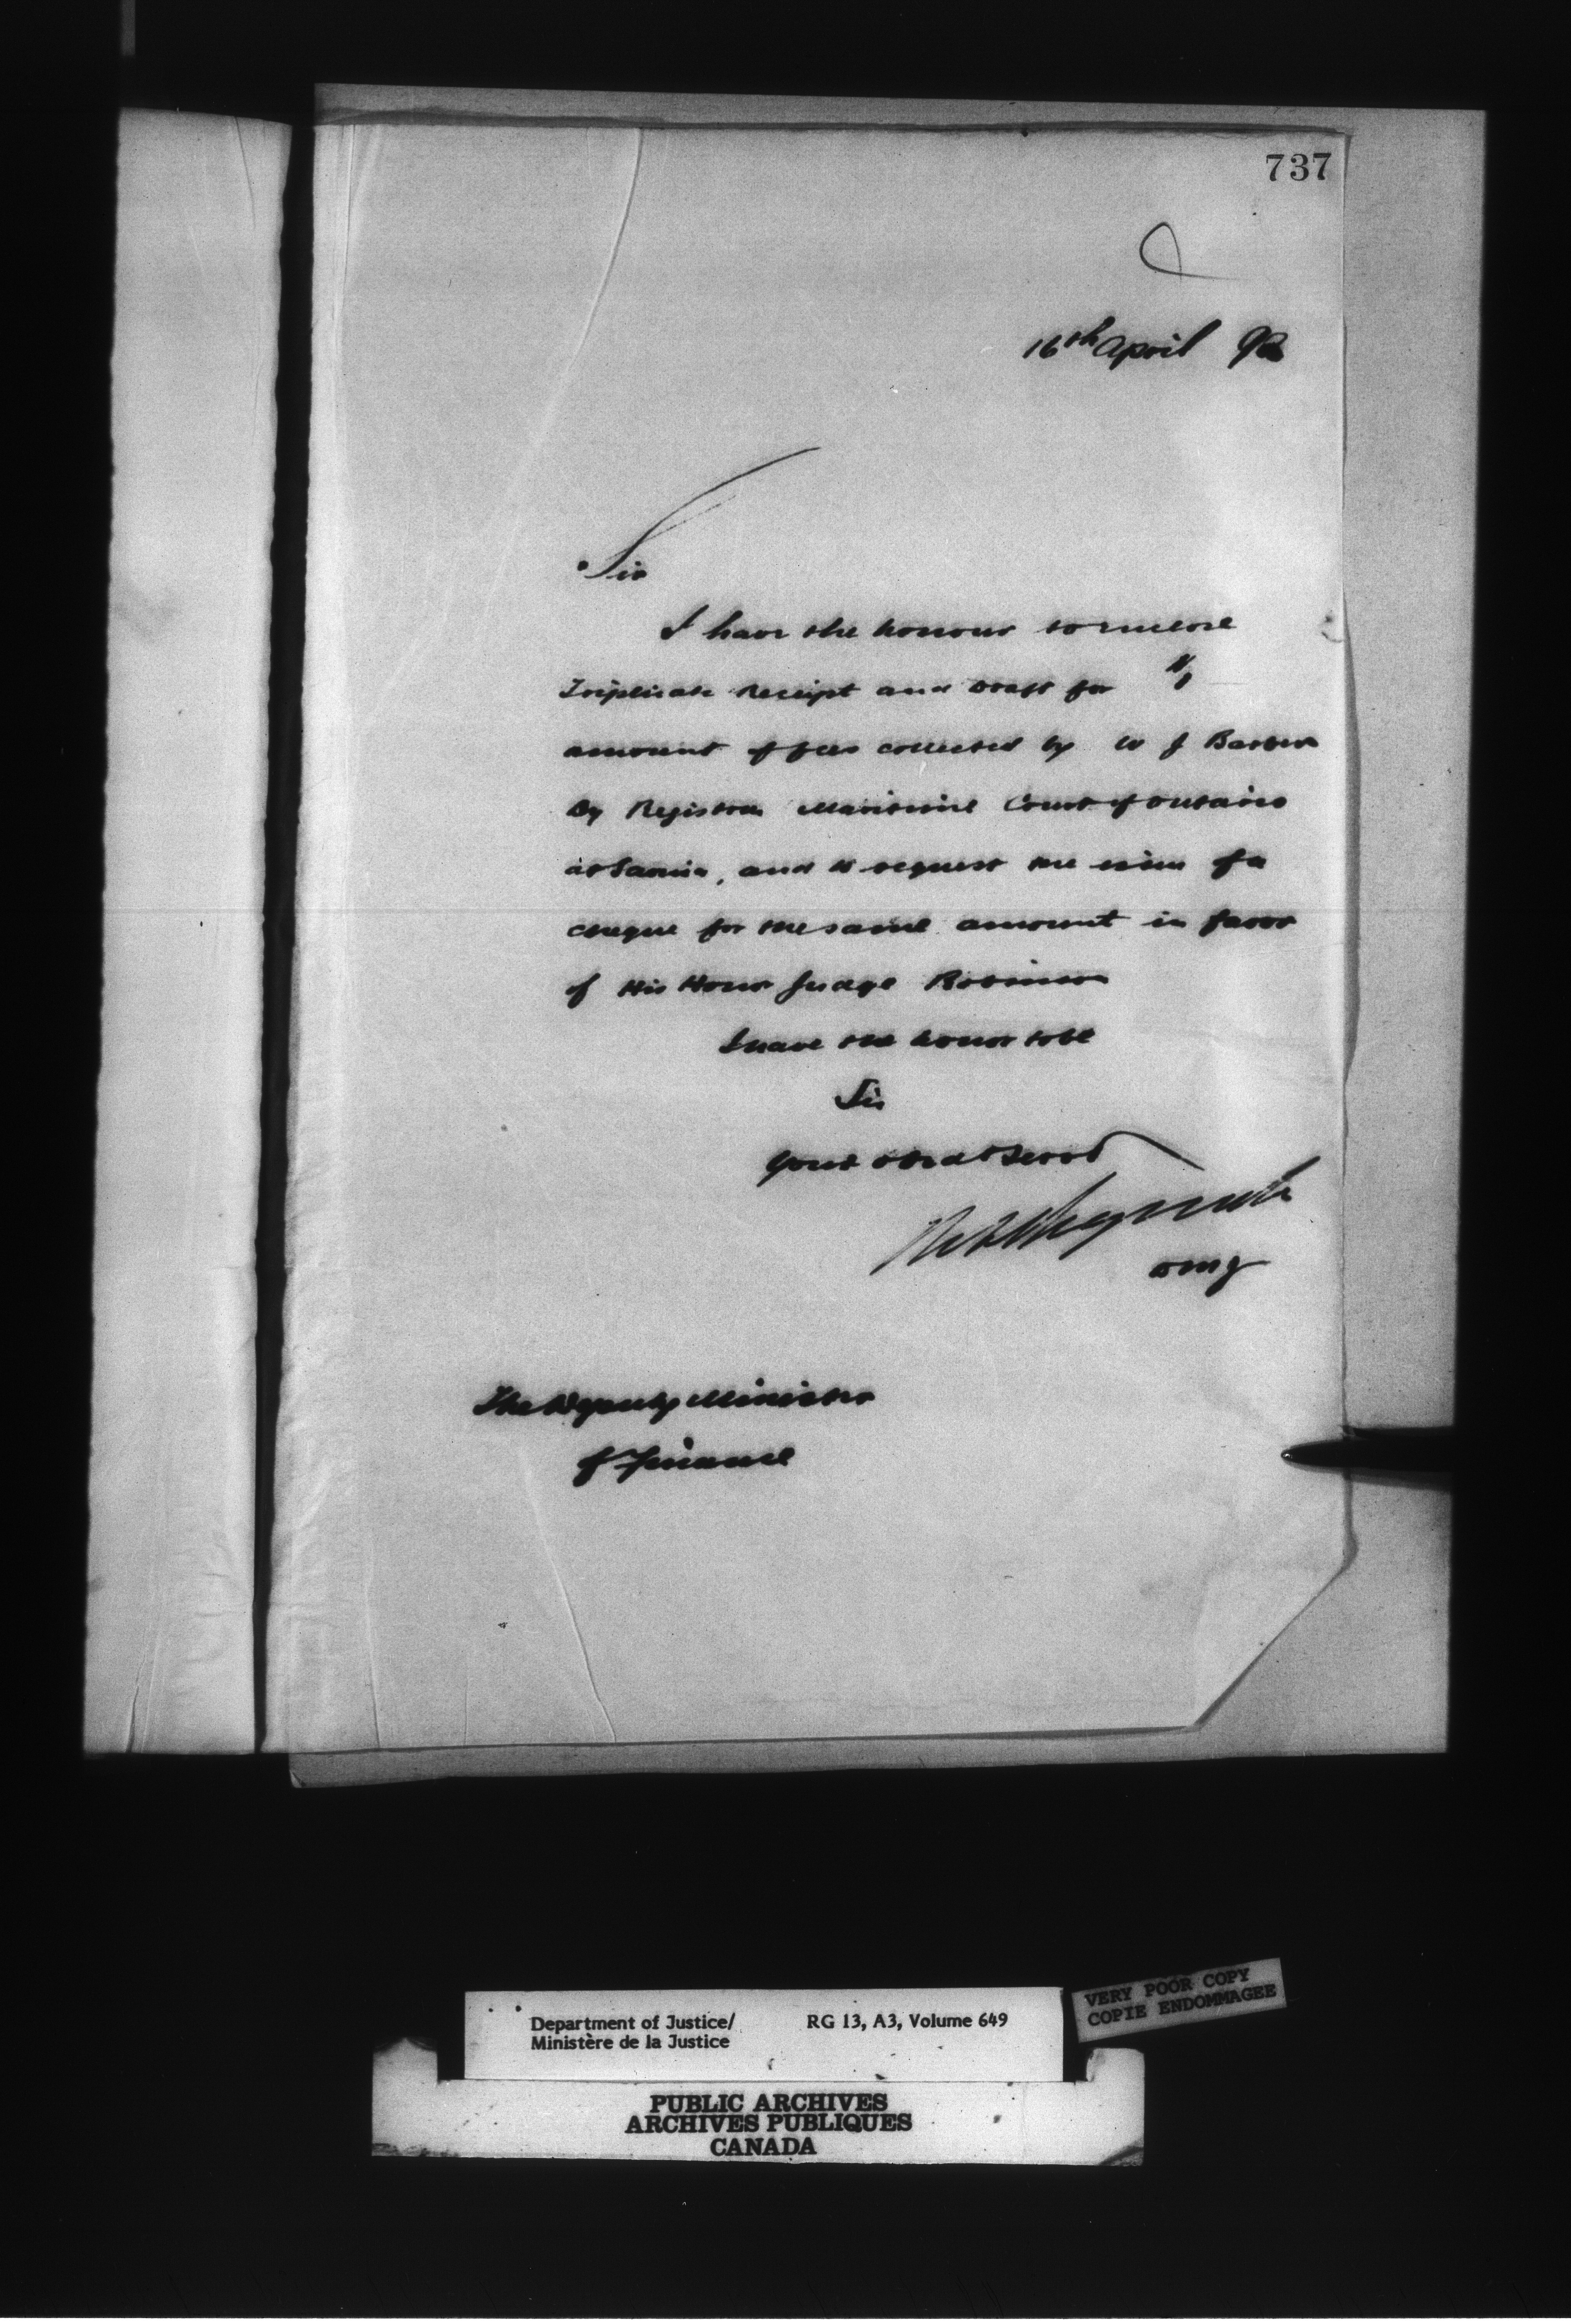 737
16th April 92
Sir
I have the honour to enclose
Triplicate Receipt and Draft for
amount of fees collected by W J Barber
Dy Registrar Maritime Court of Ontario
at Sarnia, and to request the issue of a
cheque for the same amount in favor
of His Honor Judge Robinson
I have the honor to be
Sir
Your obedt Servt
DMJ
The Deputy Minister
of Finance
Department of Justice/ RG 13, A3, Volume 649
Ministère de la Justice
VERY POOR COPY
COPIE ENDOMMAGEE
PUBLIC ARCHIVES
ARCHIVES PUBLIQUES
CANADA